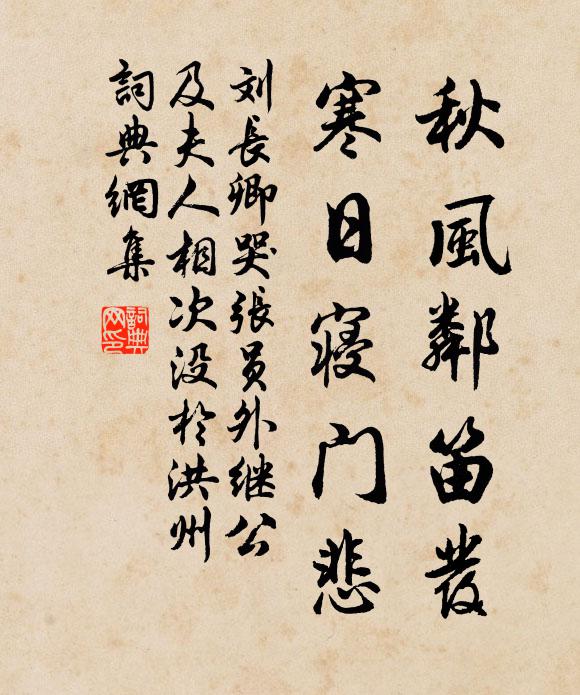 秋風鄰笛發
寒日寢门悲
刘長卿哭張员外继公
及夫人相次没於洪州
詞典網集
詞典网印